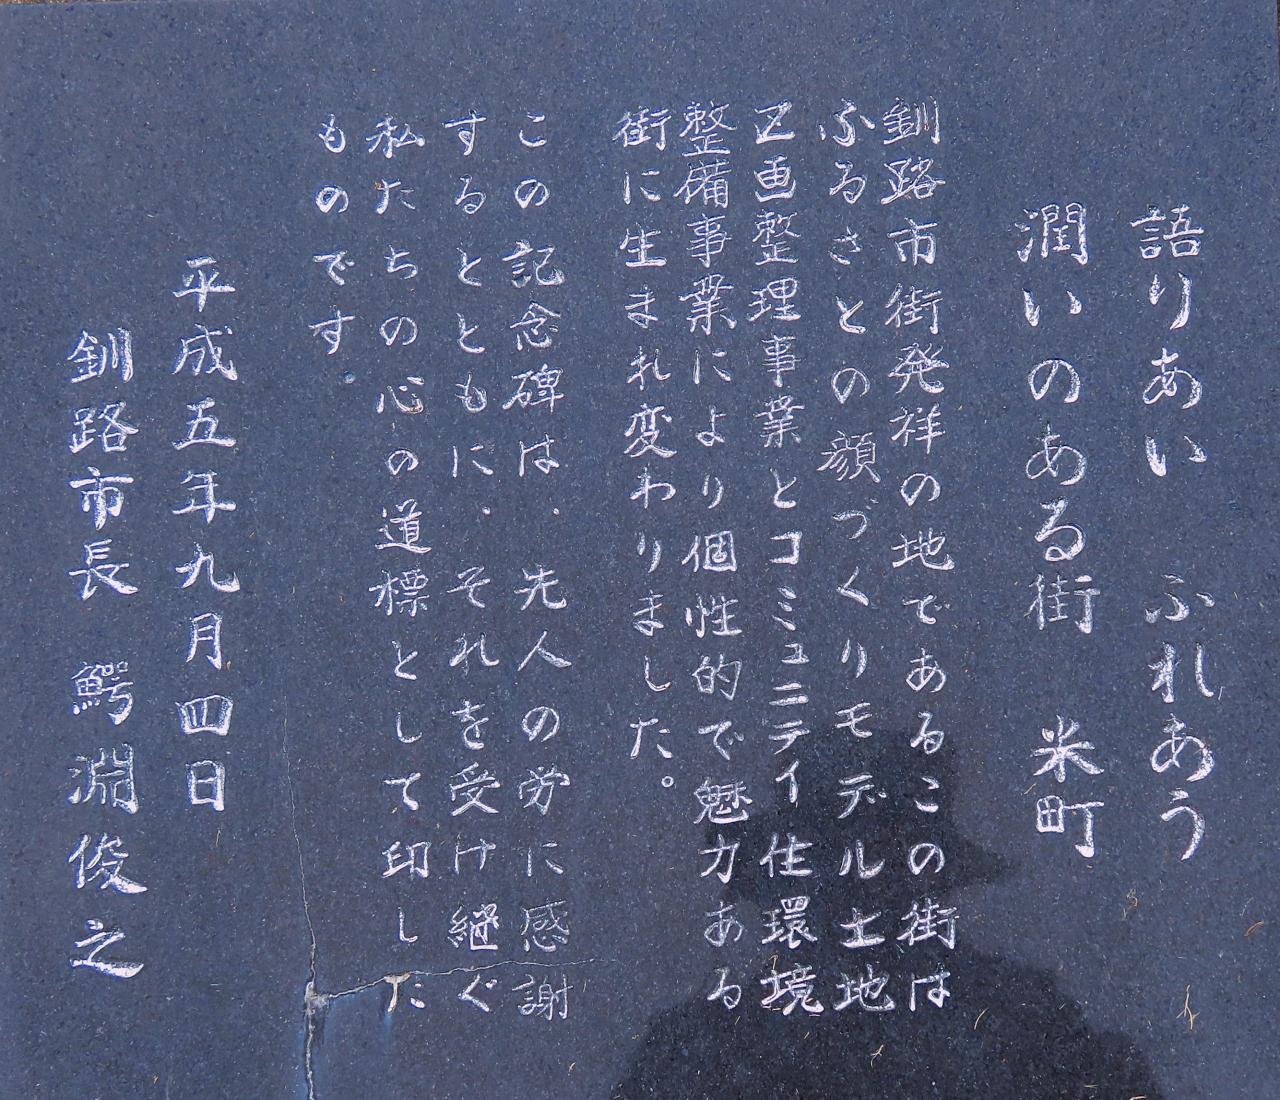 語りあい　ふれあう
潤いのある街　米町
釧路市街発祥の地であるこの街は
ふるさとの顔づくりモデル土地
区画整理事業とコミュニティ住環境
整備事業により個性的で魅力ある
街に生まれ変わりました。
この記念碑は、先人の労に感謝
するとともに、それを受け継ぐ
私たちの心の道標として印した
ものです。
平成五年九月四日
釧路市長　鰐淵俊之